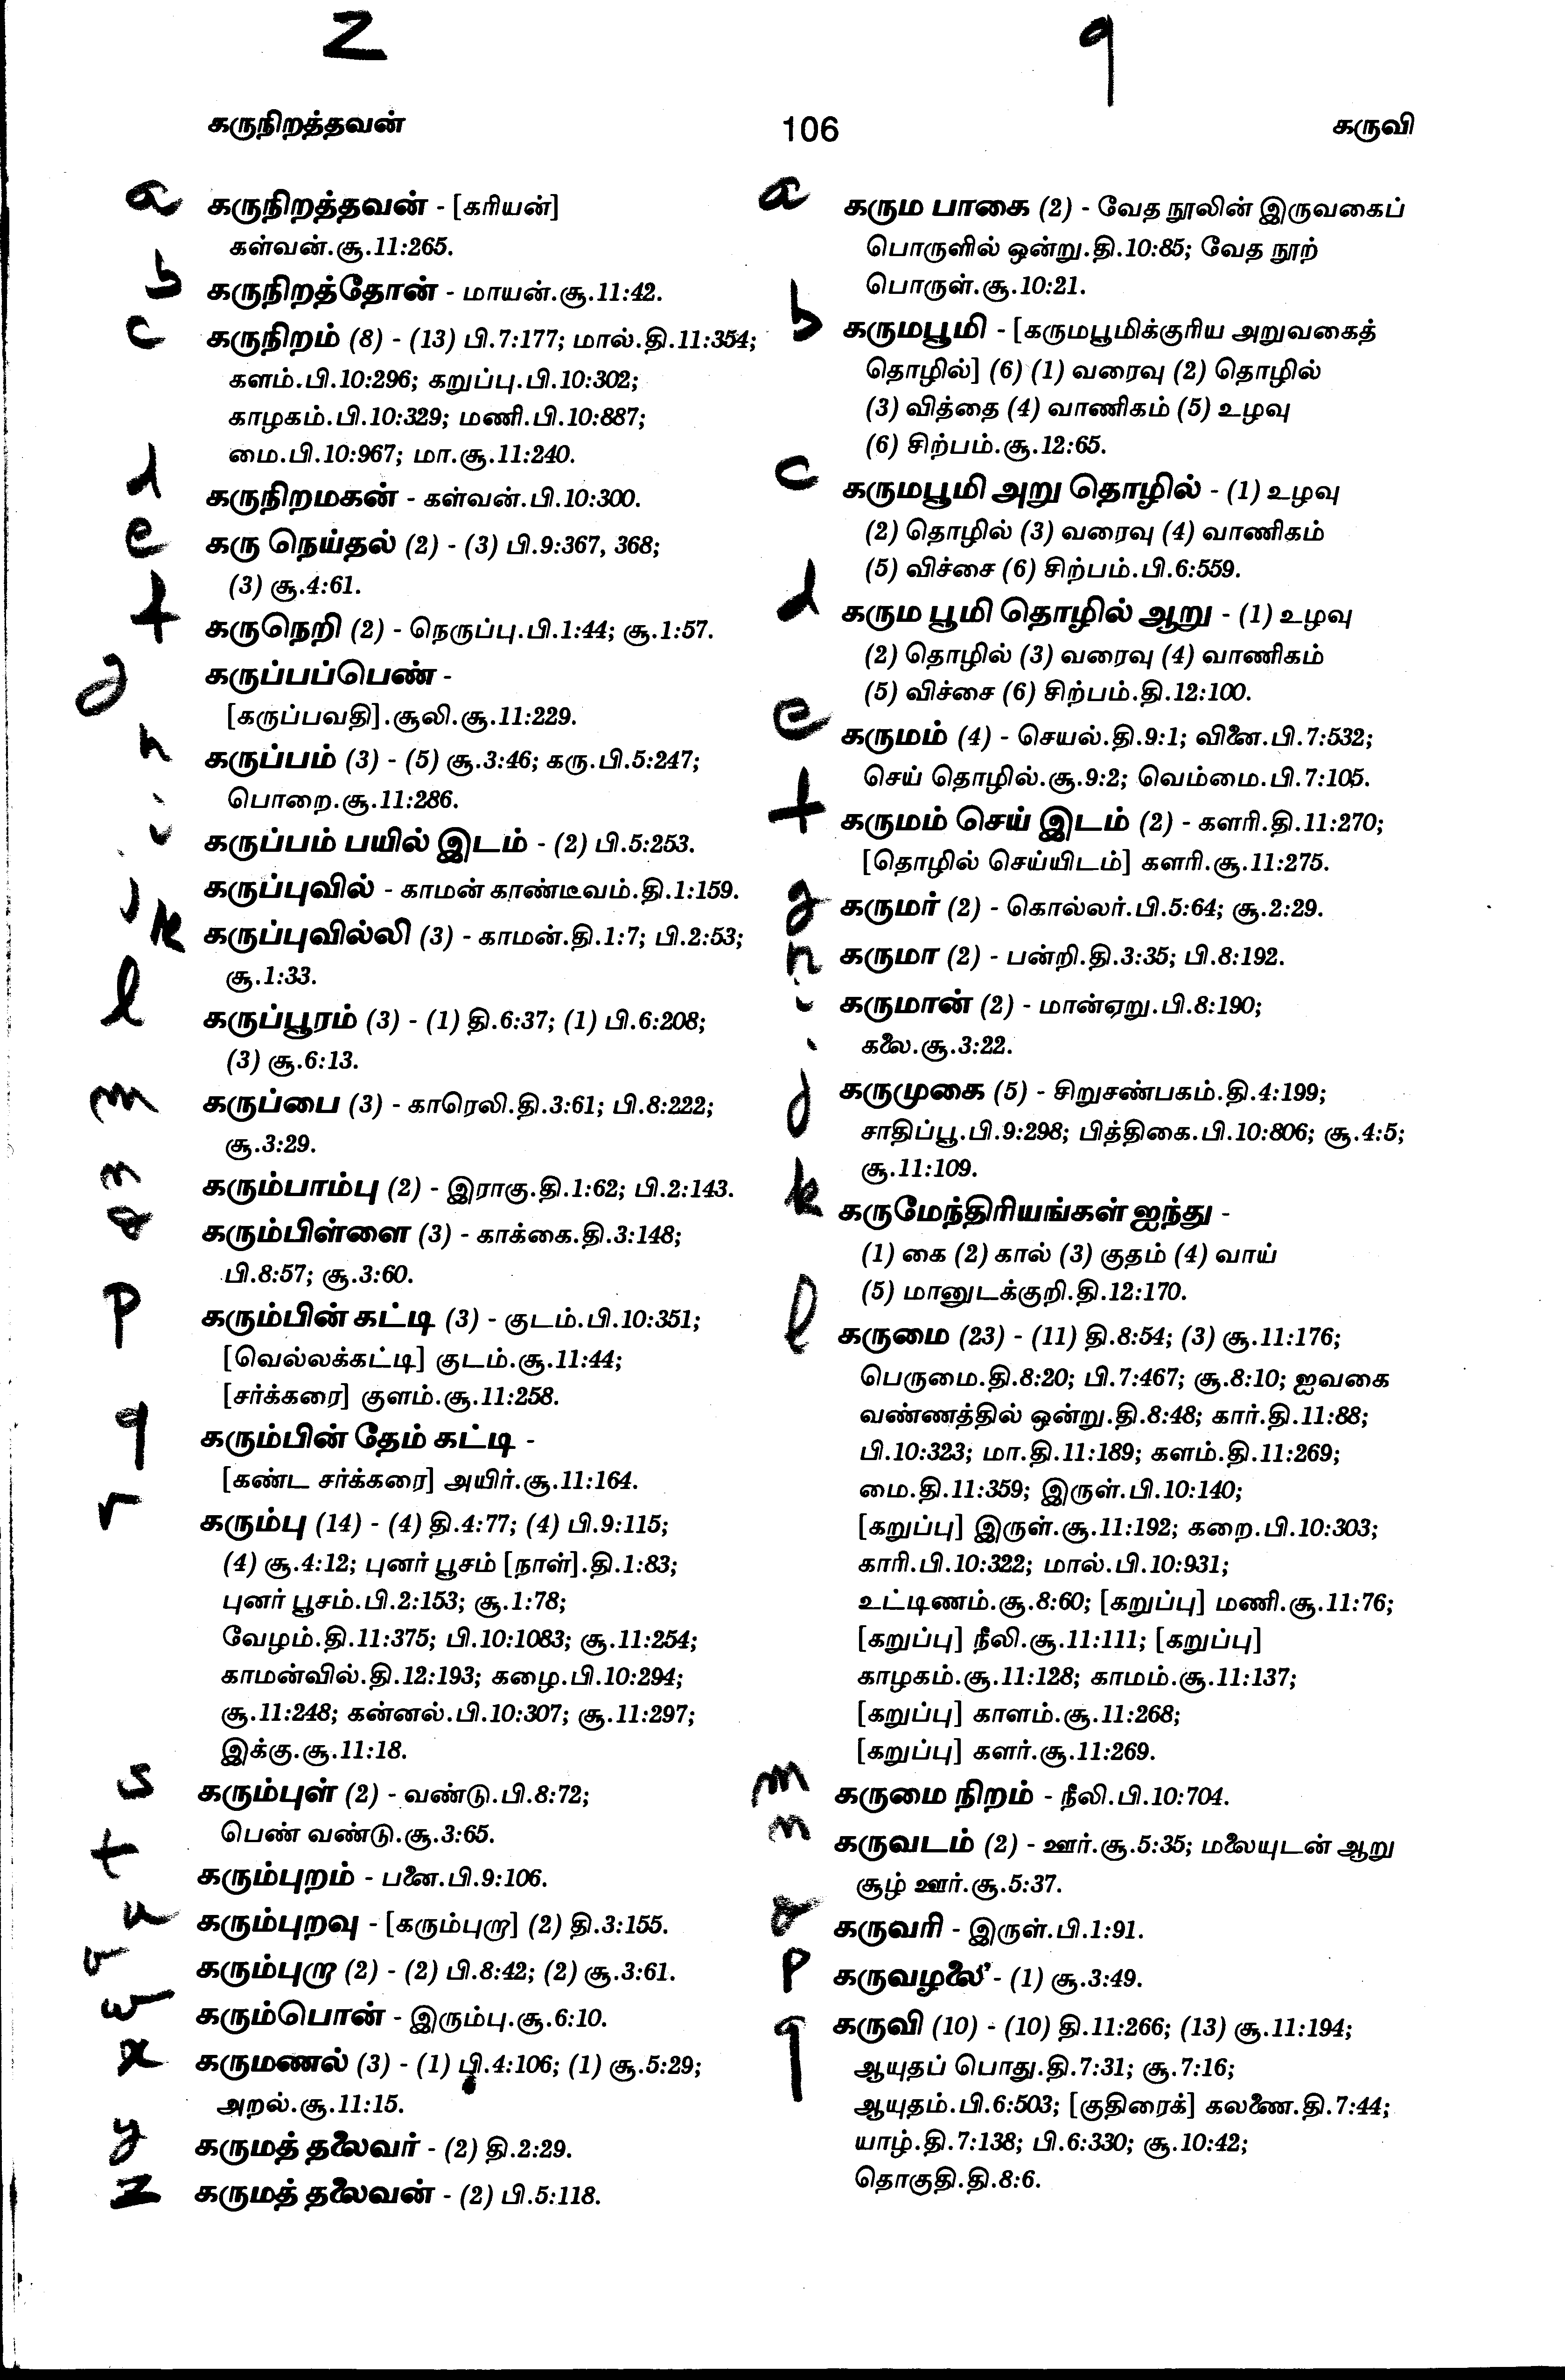 z
q
கருநிறத்தவன் 106 கருவி
a கருநிறத்தவன் - [கரியன்]
கள்வன்.சூ.11:265.
b கருநிறத்தோன் - மாயன்.சூ.11:42.
c கருநிறம் (8) - (13) பி.7:177; மால்.தி.11:354;
களம்.பி.10:296; கறுப்பு.பி.10:302;
காழகம்.பி.10:329; மணி.பி.10:887;
மை.பி.10:967; மா.சூ.11:240.
d கருநிறமகன் - கள்வன்.பி.10:300.
e கரு நெய்தல் (2) - (3) பி.9:367, 368;
(3) சூ.4:61.
f கருநெறி (2) - நெருப்பு.பி.1:44; சூ.1:57.
g கருப்பப்பெண் -
[கருப்பவதி].சூலி.சூ.11:229.
h கருப்பம் (3) - (5) சூ.3:46; கரு.பி.5:247;
பொறை.சூ.11:286.
i கருப்பம் பயில் இடம் - (2) பி.5:253.
j கருப்புவில் - காமன் காண்டீவம்.தி.1:159.
k கருப்புவில்லி (3) - காமன்.தி.1:7; பி.2:53;
சூ.1:33.
l கருப்பூரம் (3) - (1) தி.6:37; (1) பி.6:208;
(3) சூ.6:13.
m கருப்பை (3) - காரெலி.தி.3:61; பி.8:222;
சூ.3:29.
n கரும்பாம்பு (2) - இராகு.தி.1:62; பி.2:143.
o கரும்பிள்ளை (3) - காக்கை.தி.3:148;
பி.8:57; சூ.3:60.
p கரும்பின் கட்டி (3) - குடம்.பி.10:351;
[வெல்லக்கட்டி] குடம்.சூ.11:44;
[சர்க்கரை] குளம்.சூ.11:258.
q கரும்பின் தேம் கட்டி -
[கண்ட சர்க்கரை] அயிர்.சூ.11:164.
r கரும்பு (14) - (4) தி.4:77; (4) பி.9:115;
(4) சூ.4:12; புனர் பூசம் [நாள்].தி.1:83;
புனர் பூசம்.பி.2:153; சூ.1:78;
வேழம்.தி.11:375; பி.10:1083; சூ.11:254;
காமன்வில்.தி.12:193; கழை.பி.10:294;
சூ.11:248; கன்னல்.பி.10:307; சூ.11:297;
இக்கு.சூ.11:18.
s கரும்புள் (2) - வண்டு.பி.8:72;
பெண் வண்டு.சூ.3:65.
t கரும்புறம் - பனை.பி.9:106.
u கரும்புறவு - [கரும்புறா] (2) தி.3:155.
v கரும்புறா (2) - (2) பி.8:42; (2) சூ.3:61.
w கரும்பொன் - இரும்பு.சூ.6:10.
x கருமணல் (3) - (1) பி.4:106; (1) சூ.5:29;
அறல்.சூ.11:15.
y கருமத் தலைவர் - (2) தி.2:29.
z கருமத் தலைவன் - (2) பி.5:118.
a கரும பாகை (2) - வேத நூலின் இருவகைப்
பொருளில் ஒன்று.தி.10:85; வேத நூற்
பொருள்.சூ.10:21.
b கருமபூமி - [கருமபூமிக்குரிய அறுவகைத்
தொழில்] (6) (1) வரைவு (2) தொழில்
(3) வித்தை (4) வாணிகம் (5) உழவு
(6) சிற்பம்.சூ.12:65.
c கருமபூமி அறு தொழில் - (1) உழவு
(2) தொழில் (3) வரைவு (4) வாணிகம்
(5) விச்சை (6) சிற்பம்.பி.6:559.
d கரும பூமி தொழில் ஆறு - (1) உழவு
(2) தொழில் (3) வரைவு (4) வாணிகம்
(5) விச்சை (6) சிற்பம்.தி.12:100.
e கருமம் (4) - செயல்.தி.9:1; வினை.பி.7:532;
செய் தொழில்.சூ.9:2; வெம்மை.பி.7:105.
f கருமம் செய் இடம் (2) - களரி.தி.11:270;
[தொழில் செய்யிடம்] களரி.சூ.11:275.
g கருமர் (2) - கொல்லர்.பி.5:64; சூ.2:29.
h கருமா (2) - பன்றி.தி.3:35; பி.8:192.
i கருமான் (2) - மான்ஏறு.பி.8:190;
கலை.சூ.3:22.
j கருமுகை (5) - சிறுசண்பகம்.தி.4:199;
சாதிப்பூ.பி.9:298; பித்திகை.பி.10:806; சூ.4:5;
சூ.11:109.
k கருமேந்திரியங்கள் ஐந்து -
(1) கை (2) கால் (3) குதம் (4) வாய்
(5) மானுடக்குறி.தி.12:170.
l கருமை (23) - (11) தி.8:54; (3) சூ.11:176;
பெருமை.தி.8:20; பி.7:467; சூ.8:10; ஐவகை
வண்ணத்தில் ஒன்று.தி.8:48; கார்.தி.11:88;
பி.10:323; மா.தி.11:189; களம்.தி.11:269;
மை.தி.11:359; இருள்.பி.10:140;
[கறுப்பு] இருள்.சூ.11:192; கறை.பி.10:303;
காரி.பி.10:322; மால்.பி.10:931;
உட்டிணம்.சூ.8:60; [கறுப்பு] மணி.சூ.11:76;
[கறுப்பு] நீலி.சூ.11:111; [கறுப்பு]
காழகம்.சூ.11:128; காமம்.சூ.11:137;
[கறுப்பு] காளம்.சூ.11:268;
[கறுப்பு] களர்.சூ.11:269.
m கருமை நிறம் - நீலி.பி.10:704.
n கருவடம் (2) - ஊர்.சூ.5:35; மலையுடன் ஆறு
சூழ் ஊர்.சூ.5:37.
o கருவரி - இருள்.பி.1:91.
p கருவழலை - (1) சூ.3:49.
q கருவி (10) - (10) தி.11:266; (13) சூ.11:194;
ஆயுதப் பொது.தி.7:31; சூ.7:16;
ஆயுதம்.பி.6:503; [குதிரைக்] கலணை.தி.7:44;
யாழ்.தி.7:138; பி.6:330; சூ.10:42;
தொகுதி.தி.8:6.